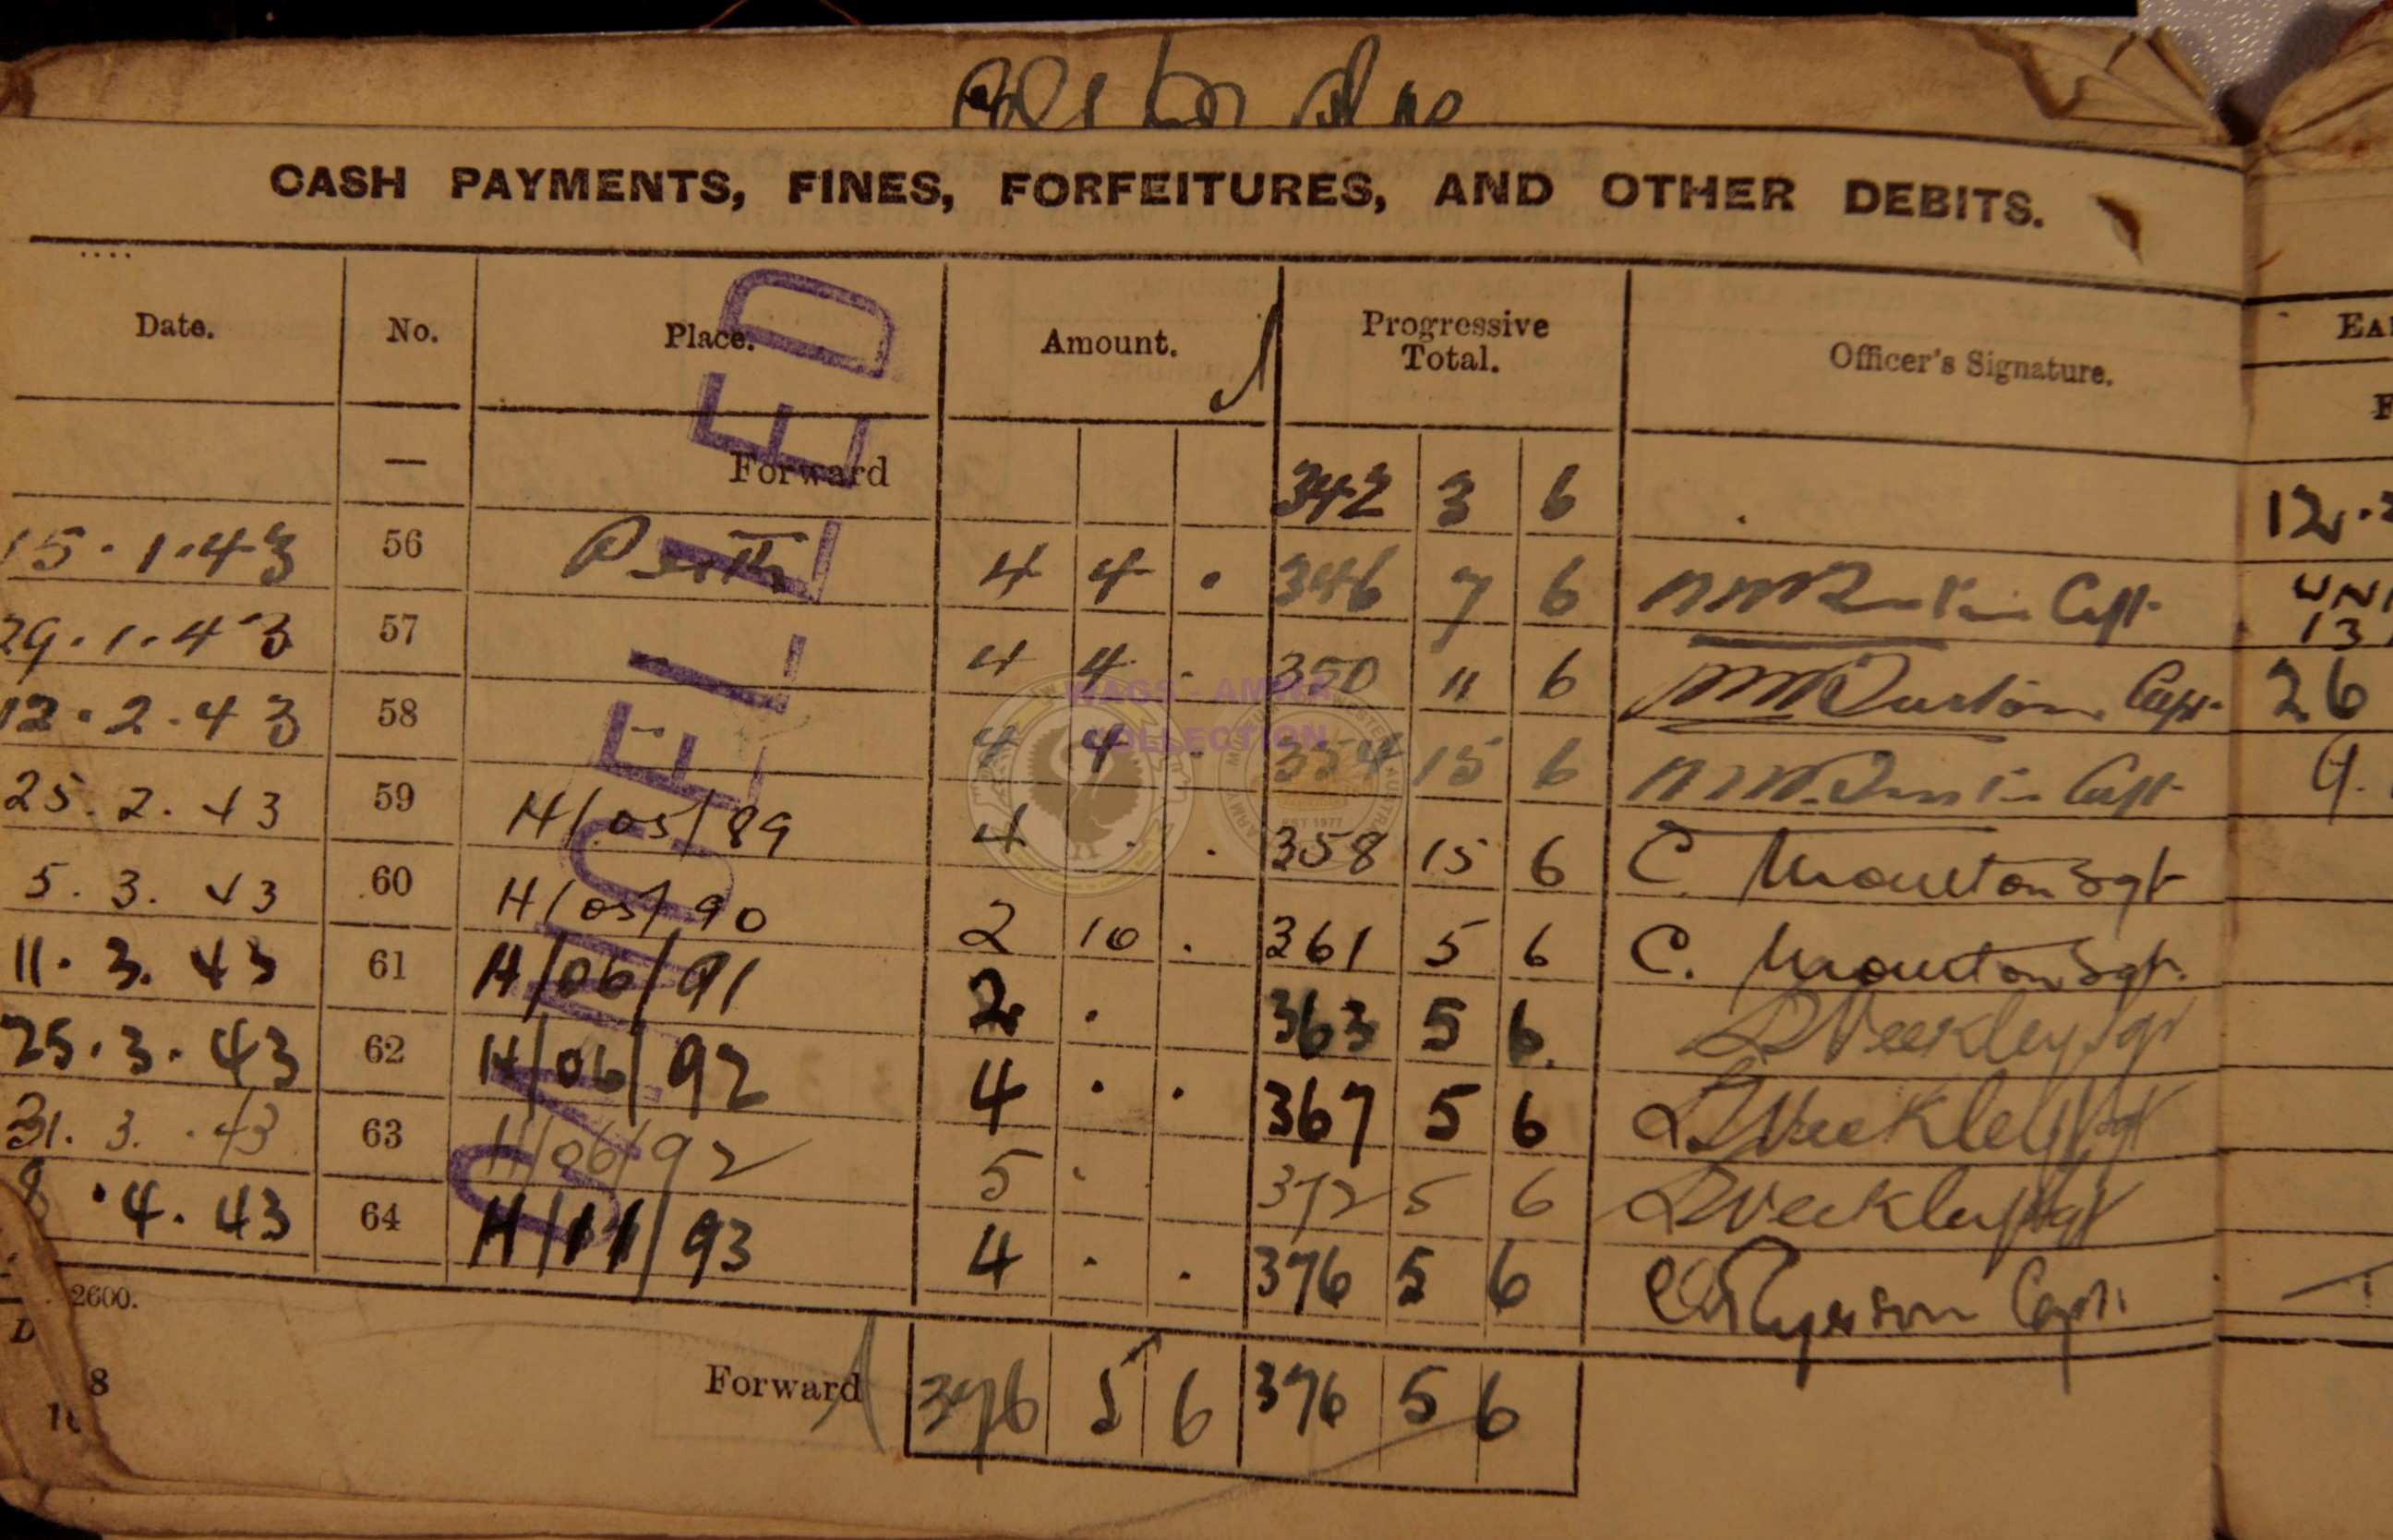 CASH PAYMENTS, FINES, FORFEITURES, AND OTHER DEBITS.
Date. No. Place. Amount. Progressive Total. Officer's Signature.
— Forward 342 3 6
15.1.43 56 Perth 4 4 . 346 7 6 Capt.
29.1.43 57 4 4 . 350 11 6 Capt.
12.2.43 58 4 4 . 354 15 6 Capt.
25.2.43 59 H/05/89 4 . . 358 15 6 C. Moulton Sgt
5.3.43 60 H/05/90 2 10 . 361 5 6 C. Moulton Sgt.
11.3.43 61 H/06/91 2 . 363 5 6. Weekley Sgt
25.3.43 62 H/06/92 4 . . 367 5 6 Weekley Sgt
31.3.43 63 H/06/92 5 . . 372 5 6 Weekley Sgt
8.4.43 64 H/11/93 4 . . 376 5 6 Capt.
Forward 376 5 6 376 5 6
CANCELLED
2600.
D
8
EA
F
12.
UNI
13
26
9.
WAGS - AMWA
COLLECTION
EST 1977